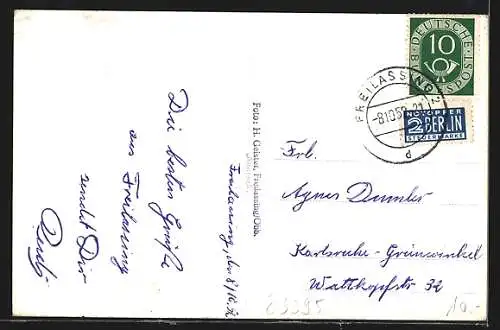 Die besten Grüße
aus Freilassing
sendet Dir
Freilassing, den 8/10.52
Foto: H. Geister, Freilassing/Obb.
DEUTSCHE BUNDESPOST
10
FREILASSING 2
-8.10.52.-21
d
NOTOPFER
2 BERLIN
STEUERMARKE
Frl.
Agnes Demmler
Karlsruhe-Grünwinkel
Wattkopfstr 32